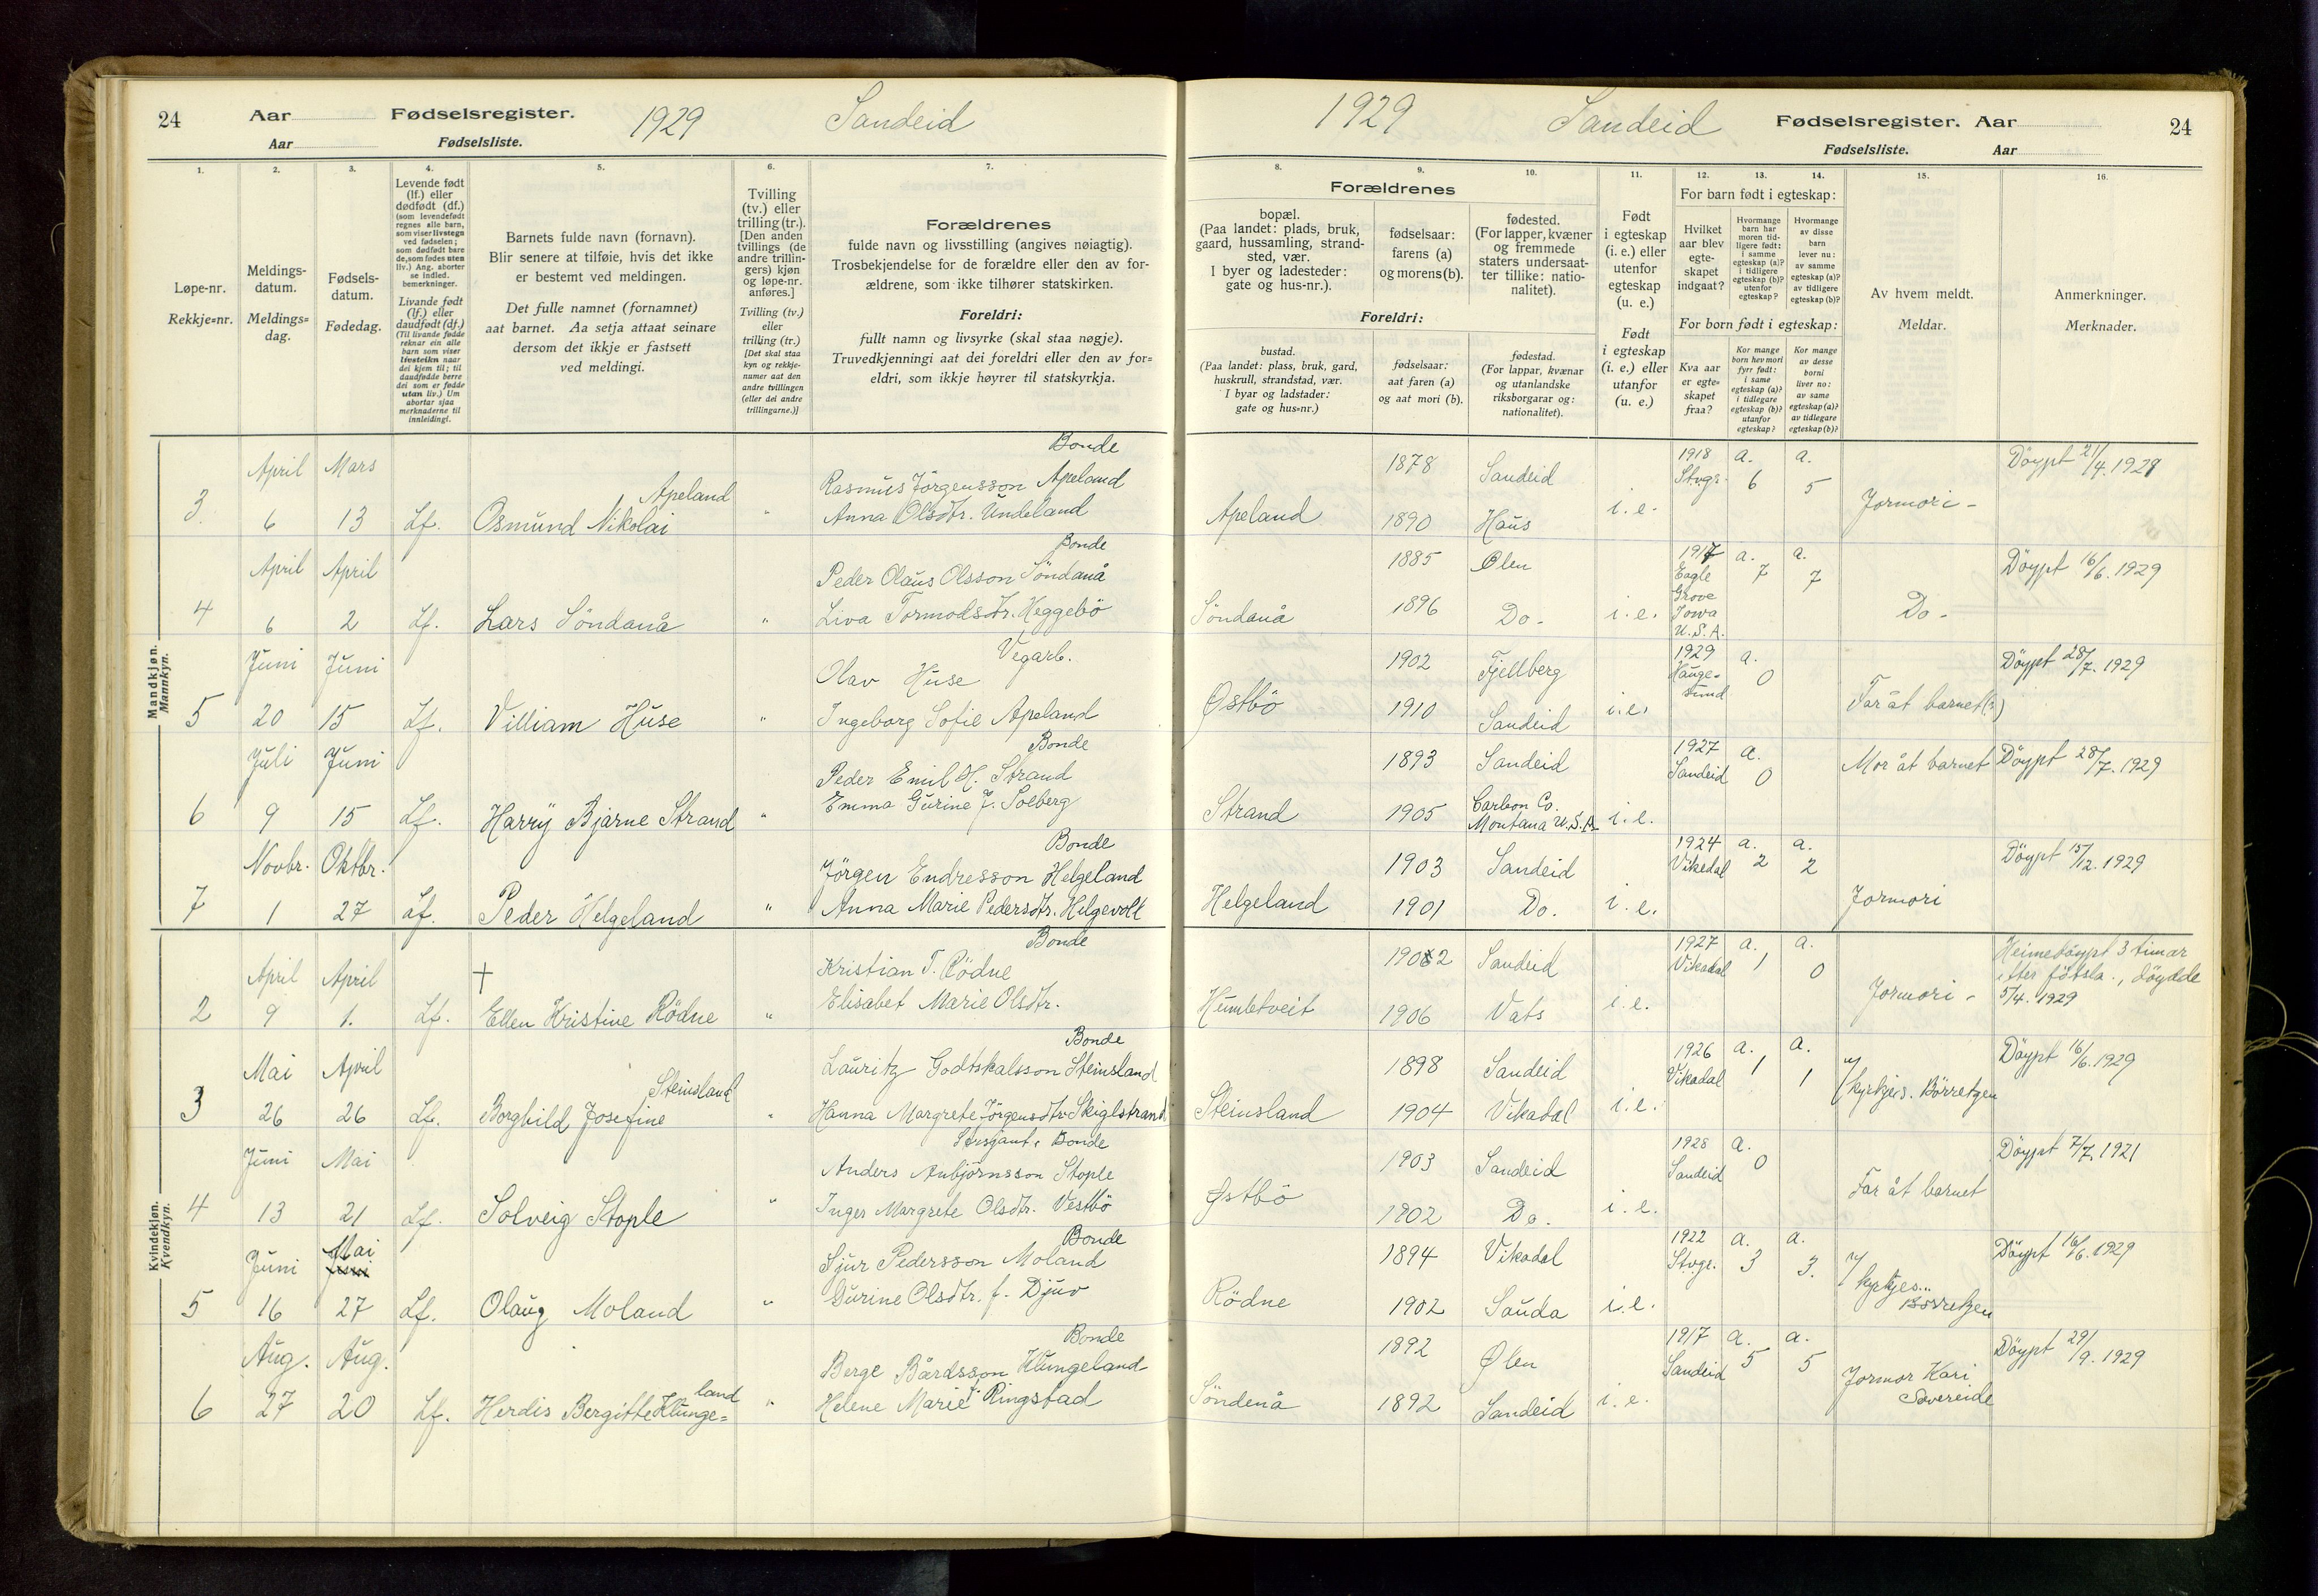 24 Aar Fødselsregister. 1929 Sandeid
Aar Fødselsliste.
1. 2. 3. 4. 5. 6. 7.
Løpe-nr.
Rekkje=nr.
Meldings-
datum.
Meldings=
dag.
Fødsels-
datum.
Fødedag.
Levende født
(lf.) eller
dødfødt (df.)
(som levendefødt
regnes alle barn,
som viser livstegn
ved fødselen;
som dødfødt bare
de, som fødes uten
liv.) Ang. aborter
se indled.
bemerkninger.
Livande født
(lf.) eller
daudfødt (df.)
(Til livande fødde
reknar ein alle
barn som viser
livsteikn naar
dei kjem til; til
daudfødde berre
dei som er fødde
utan liv.) Um
abortar sjaa
merknaderne til
innleidingi.
Barnets fulde navn (fornavn).
Blir senere at tilføie, hvis det ikke
er bestemt ved meldingen.
Det fulle namnet (fornamnet)
aat barnet. Aa setja attaat seinare
dersom det ikkje er fastsett
ved meldingi.
Tvilling
(tv.) eller
trilling (tr.).
[Den anden
tvillings (de
andre trillin-
gers) kjøn
og løpe-nr.
anføres.]
Tvilling (tv.)
eller
trilling (tr.)
[Det skal staa
kyn og rekkje-
numer aat den
andre tvillingen
(eller dei andre
trillingarne.)]
Forældrenes
fulde navn og livsstilling (angives nøiagtig).
Trosbekjendelse for de forældre eller den av for-
ældrene, som ikke tilhører statskirken.
Foreldri:
fullt namn og livsyrke (skal staa nøgje).
Truvedkjenningi aat dei foreldri eller den av for=
eldri, som ikkje høyrer til statskyrkja.
Mandkjøn.
Mannkyn.
April Mars Bonde
Apeland Rasmus Jörgensson Apeland
3. 6 13 Lf. Osmund Nikolai " Anna Olsdtr. Undeland
April April Bonde
Peder Olaus Olsson Söndanå
4 6 2 Lf. Lars Söndanå " Liva Tormodsdtr. Heggebö
Juni Juni Vegarb.
Olav Huse
5 20 15 Lf. Villiam Huse " Ingeborg Sofie Apeland
Juli Juni Bonde
Peder Emil H. Strand
6 9 15 Lf. Harry Bjarne Strand " Emma Gurine J. Solberg
Novbr. Oktbr. Bonde
Jörgen Endresson Helgeland
7 1 27 Lf. Peder Helgeland " Anna Marie Pedersdtr. Helgevolt
Kvindekjøn.
Kvendkyn.
April April † Bonde
Kristian T. Rödne
2 9 1. Lf. Ellen Kristine Rödne " Elisabet Marie Olsdtr.
Mai April Bonde
Steinsland Lauritz Godtskalsson Steinsland
3 26 26 Lf. Borghild Josefine " Hanna Margrete Jörgensdtr Skiglstrand
Juni Mai Bonde
Anders Anbjörnsson Stople
4 13 21 Lf. Solveig Stople " Inger Margrete Olsdtr. Vestbö
Juni Mai Juni Bonde
Sjur Pedersson Moland
5 16 27 Lf. Olaug Moland " Gurine Olsdtr. f. Djuv
Aug. Aug. Bonde
land Berge Bårdsson Klungeland
6 27 20 Lf. Herdis Bergitte Klunge= " Helene Marie f. Ringstad
1929 Sandeid Fødselsregister. Aar 24
Fødselsliste. Aar
8. 9. 10. 11. 12. 13. 14. 15. 16.
Forældrenes
bopæl.
(Paa landet: plads, bruk,
gaard, hussamling, strand-
sted, vær.
I byer og ladesteder:
gate og hus-nr.).
fødselsaar:
farens (a)
og morens (b).
fødested.
(For lapper, kvæner
og fremmede
staters undersaat-
ter tillike: natio-
nalitet).
Foreldri:
bustad.
(Paa landet: plass, bruk, gard,
huskrull, strandstad, vær.
I byar og ladstader:
gate og hus=nr.)
fødselsaar:
aat faren (a)
og aat mori (b).
fødestad.
(For lappar, kvænar
og utanlandske
riksborgarar og:
nationalitet).
Født
i egteskap
(i. e.) eller
utenfor
egteskap
(u. e.)
Født
i egteskap
(i. e.) eller
utanfor
(u. e.)
For barn født i egteskap:
Hvilket
aar blev
egte-
skapet
indgaat?
Hvormange
barn har
moren tid-
ligere født:
i samme
egteskap (a)?
i tidligere
egteskap (b)?
utenfor
egteskap?
Hvormange
av disse
barn
lever nu:
av samme
egteskap (a)?
av tidligere
egteskap (b)?
For born født i egteskap:
Kva aar
er egte=
skapet
fraa?
Kor mange
born hev mori
fyrr født:
i same
egteskap (a)?
i tidlegare
egteskap (b)?
utanfor
egteskap?
Kor mange
av desse
borni
liver no:
av same
egteskap (a)?
av tidlegare
egteskap (b)?
Av hvem meldt.
Meldar.
Anmerkninger.
Merknader.
1878 Sandeid 1918 a. a. Döypt 21/4. 1929
Stvgr. 6 5
Apeland 1890 Haus i. e. Jormori -
1885 Ølen 1917 a. a. Döypt 16/6. 1929
Eagle 7 7
Söndanå 1896 Do. i. e. Grove Do -
Iowa
U. S. A.
1902 Fjellberg 1929 a. Döypt 28/7. 1929
Hauge- 0
sund
Østbö 1910 Sandeid i. e. Far åt barnet
1893 Sandeid 1927 a. Mor åt barnet Döypt 28/7. 1929
Sandeid 0
Strand 1905 Carbon Co. i. e.
Montana U. S. A.
1903 Sandeid 1924 a. a. Döypt 15/12. 1929
Vikedal 2 2
Helgeland 1901 Do. i. e. Jormori
1902 Sandeid 1927 a. a. Heimedöypt 3 timar
Vikadal 1 0 etter födsla., döydde
Humletveit 1906 Vats i. e. Jormori - 5/4. 1929
1898 Sandeid 1926 a. a. Döypt 16/6. 1929
Vikadal 1 1
Steinsland 1904 Vikadal i. e. v/ kyrkjes. Börretzen
1903 Sandeid 1928 a. Döypt 7/7. 1921
Sandeid 0
Østbö 1902 Do. i. e. Far åt barnet
1894 Vikadal 1922 a. a. Döypt 16/6. 1929
Stvgr. 3 3.
Rödne 1902 Sauda i. e. v/ kyrkjes.
Börretzen
1892 Ølen 1917 a. a. Döypt 29/9. 1929
Sandeid 5 5
Söndenå 1892 Sandeid i. e. Jormor Kari
Sövereide